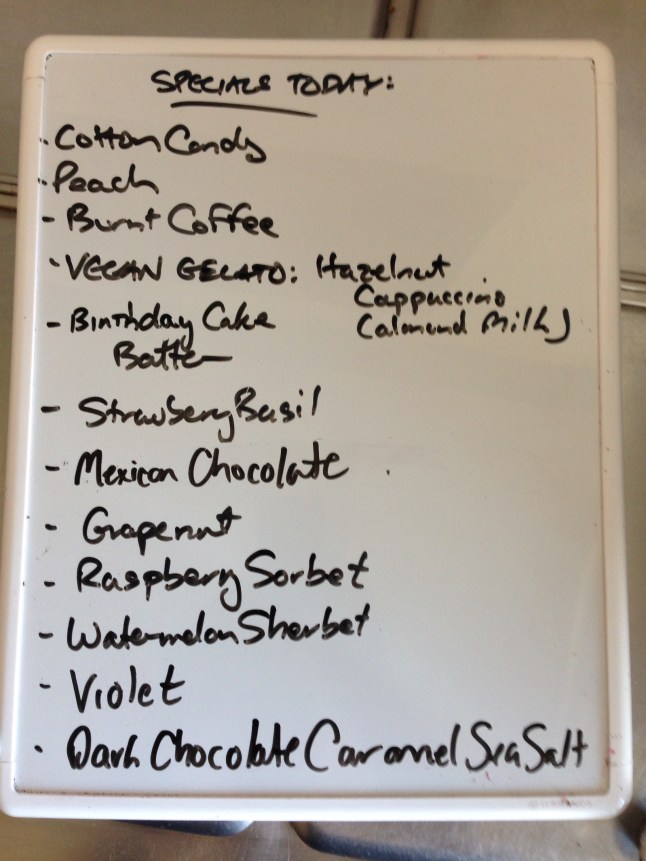 SPECIALS TODAY:
- Cotton Candy
- Peach
- Burnt Coffee
- VEGAN GELATO: Hazelnut
Cappuccino
(almond Milk)
- Birthday Cake
Batter
- Strawberry Basil
- Mexican Chocolate
- Grapenut
- Raspberry Sorbet
- Watermelon Sherbet
- Violet
- Dark Chocolate Caramel Sea Salt